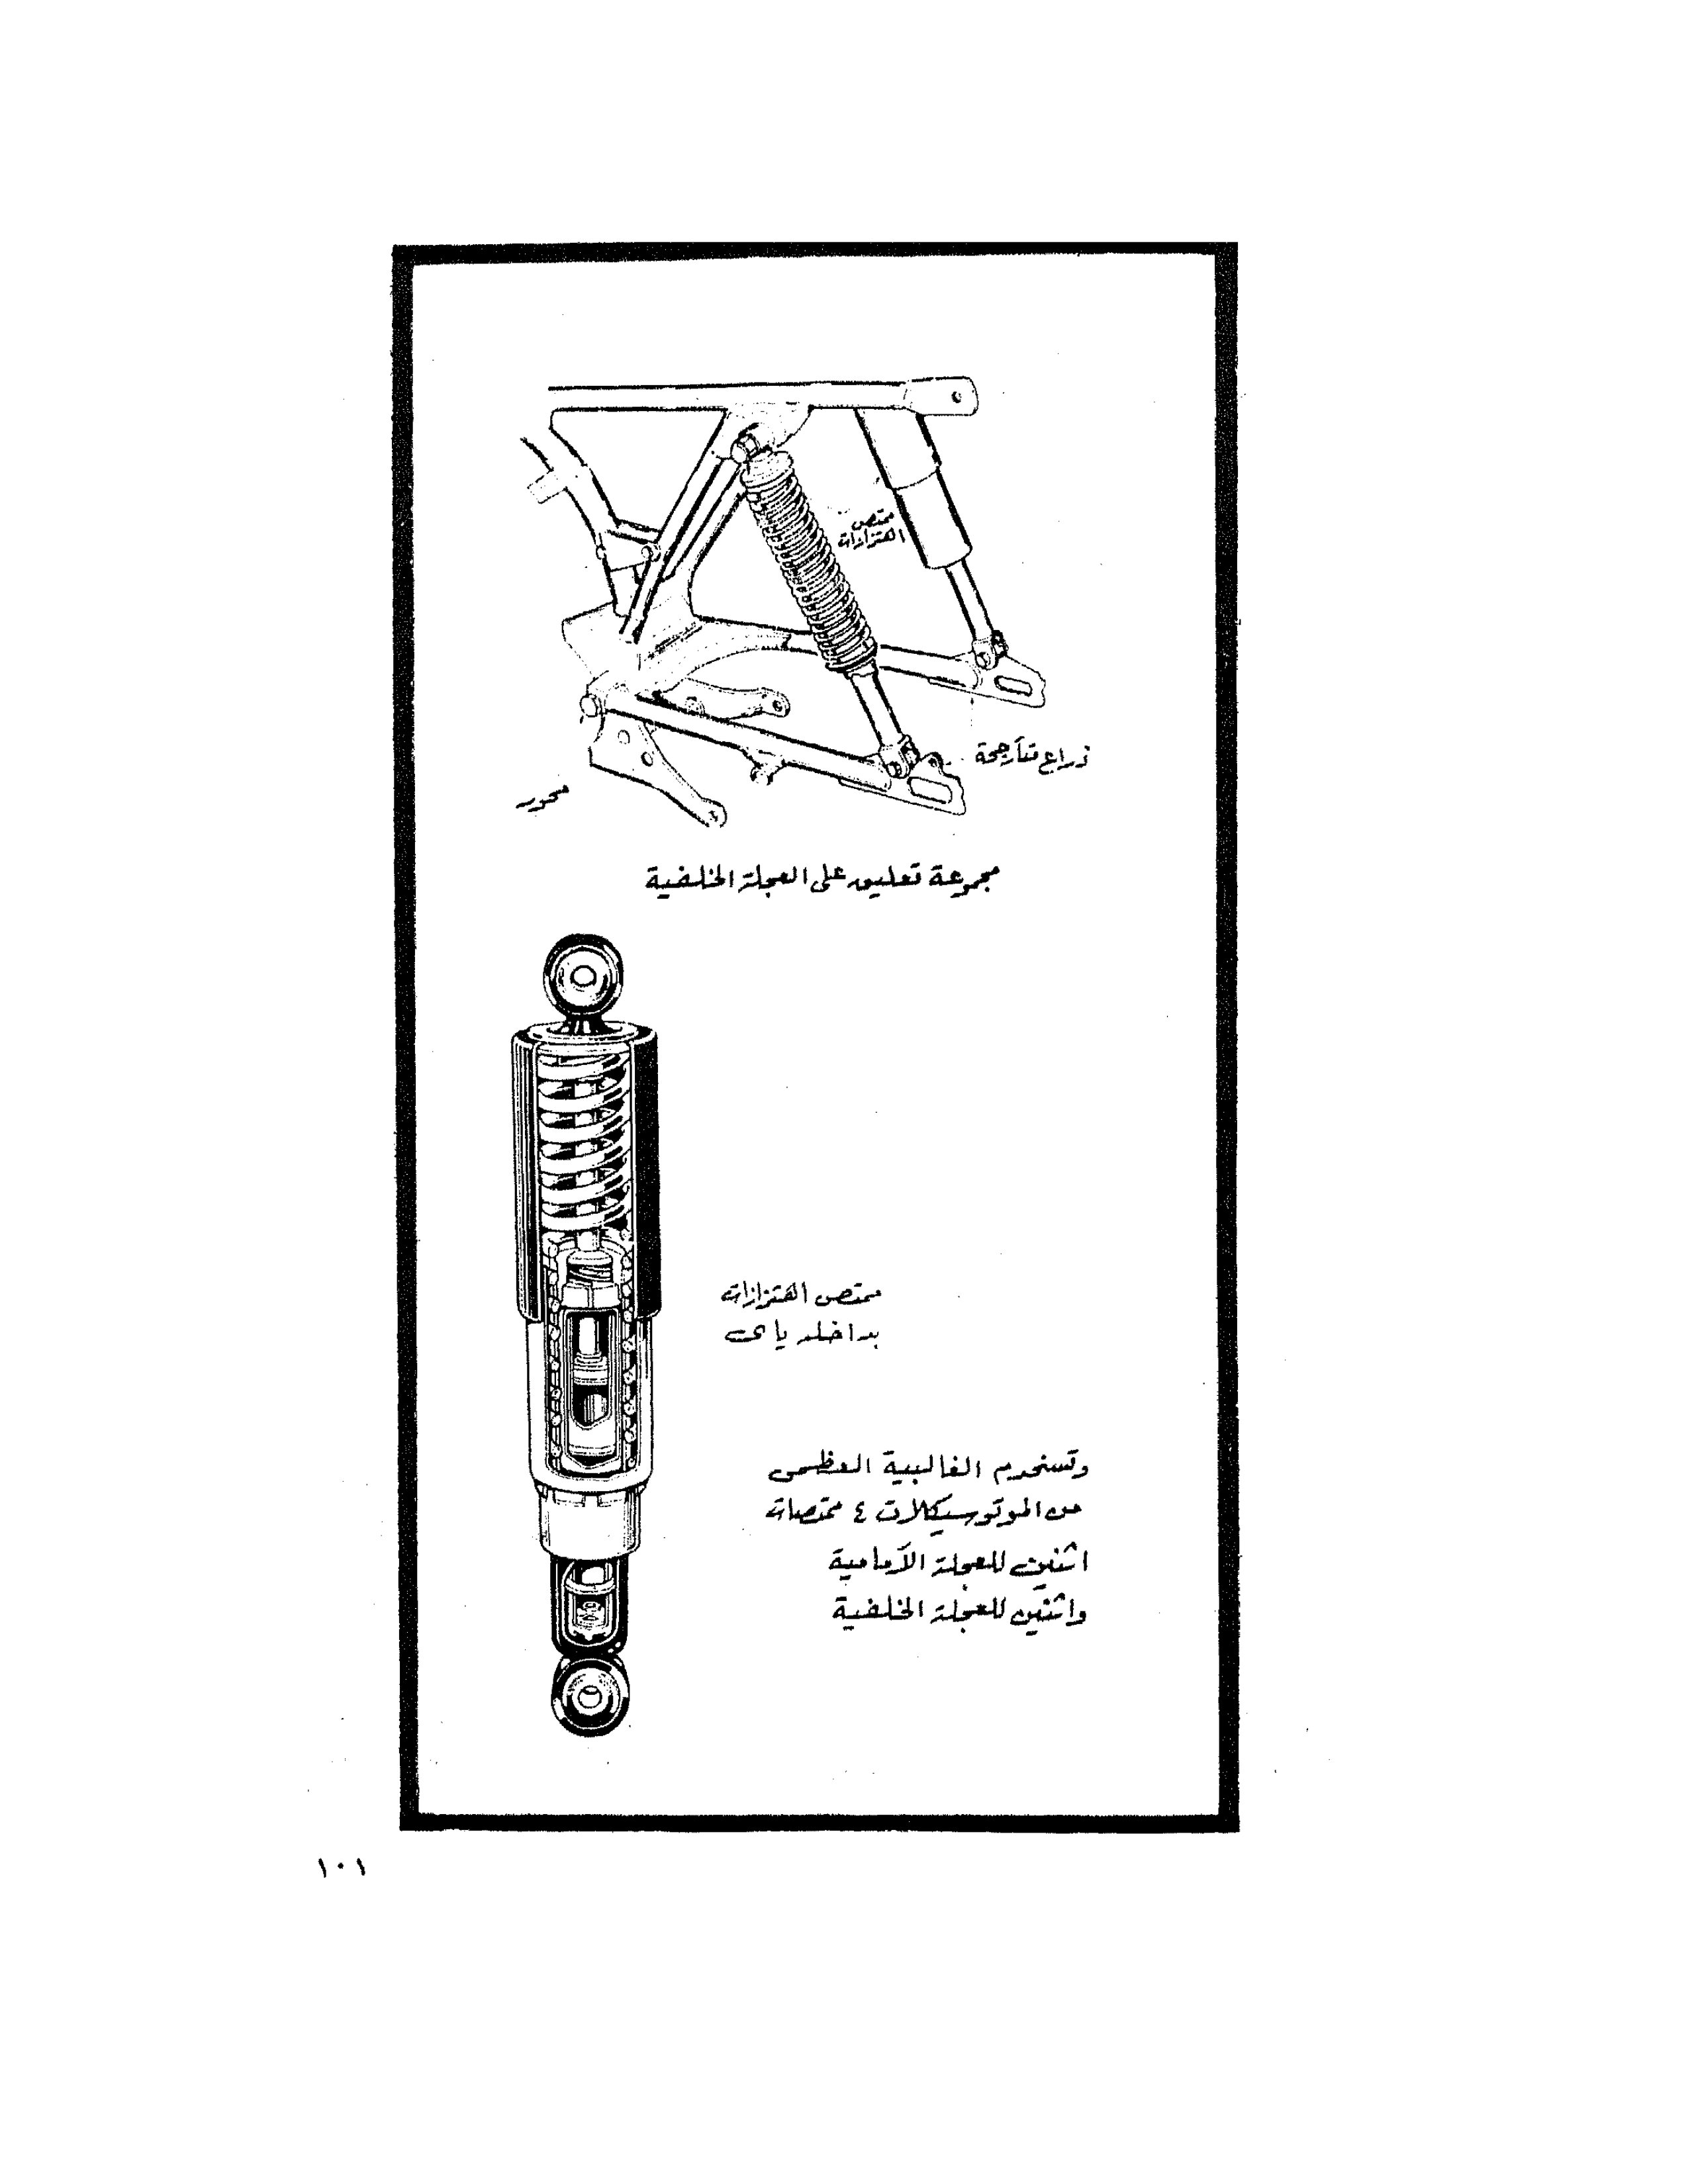 ممتص
اهتزازات
ذراع متأرجحة
محور
مجموعة تعليق على العجلة الخلفية
ممتص اهتزازات
بداخله ياى
وتستخدم الغالبية العظمى
من الموتوسيكلات ٤ ممتصات
اثنين للعجلة الأمامية
واثنين للعجلة الخلفية
١٠١